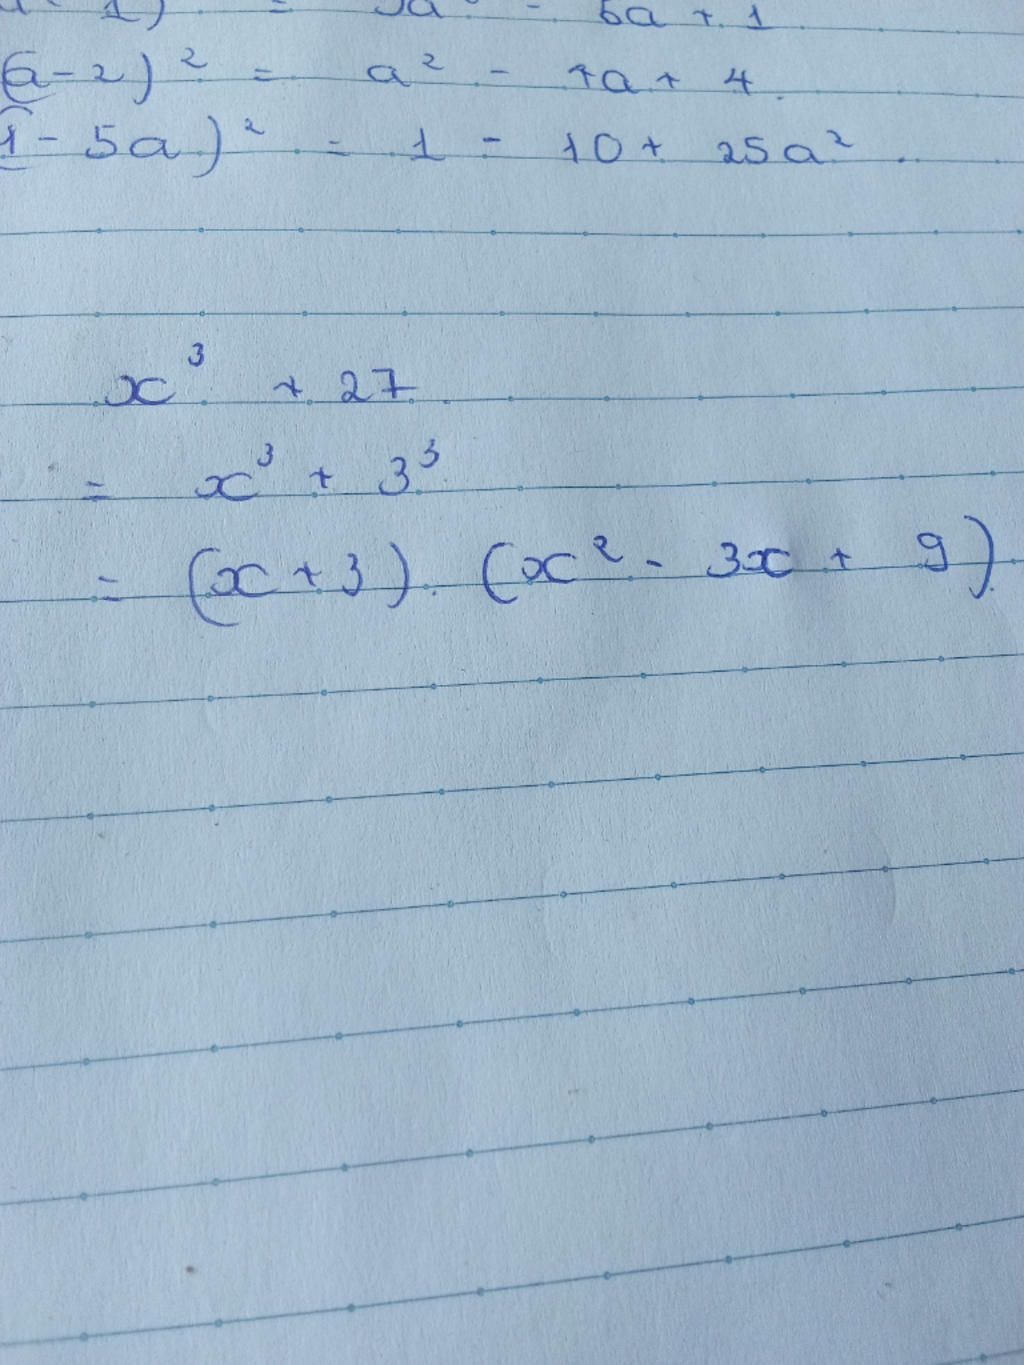 1) = a - 6a + 1
(a - 2)² = a² - 4a + 4.
(1 - 5a)² = 1 - 10 + 25a².
x³ + 27.
= x³ + 3³
= (x + 3). (x² - 3x + 9).